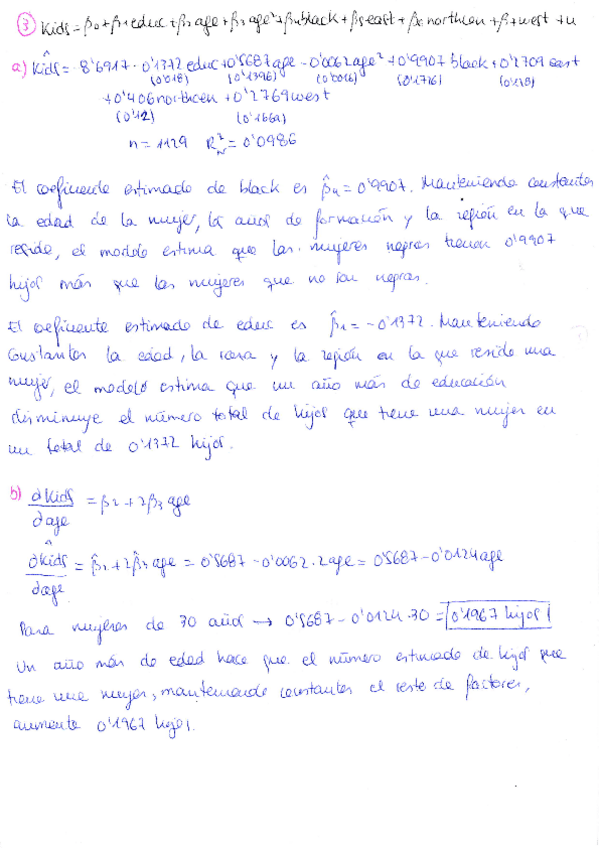 ③ Kids = β0 + β1 educ + β2 age + β3 age² + β4 black + β5 east + β6 northcen + β7 west + u
a) Kidŝ = -8'6917 - 0'1372 educ + 0'5687 age - 0'0062 age² + 0'9907 black + 0'2709 east
(0'018) (0'1396) (0'0016) (0'1776) (0'178)
+ 0'406 northcen + 0'2769 west
(0'12) (0'1669)
n = 1129 R² = 0'0986
El coeficiente estimado de black es β̂4 = 0'9907. Manteniendo constantes
la edad de la mujer, la años de formación y la región en la que
reside, el modelo estima que las mujeres negras tienen 0'9907
hijos más que las mujeres que no son negras.
El coeficiente estimado de educ es β̂1 = -0'1372. Manteniendo
constantes la edad, la raza y la región en la que reside una
mujer, el modelo estima que un año más de educación
disminuye el número total de hijos que tiene una mujer en
un total de 0'1372 hijos.
b) ∂Kids/∂age = β2 + 2β3 age
∂Kidŝ/∂age = β̂2 + 2β̂3 age = 0'5687 - 0'0062 · 2age = 0'5687 - 0'0124 age
Para mujeres de 30 años → 0'5687 - 0'0124 · 30 = 0'1967 hijos
Un año más de edad hace que el número estimado de hijos que
tiene una mujer, manteniendo constantes el resto de factores,
aumente 0'1967 hijos.